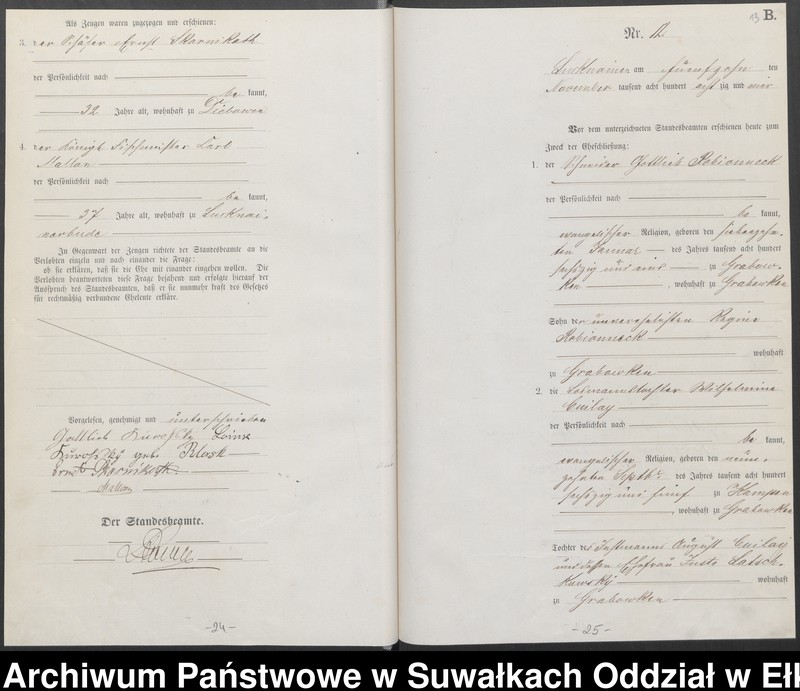 Als Zeugen waren zugezogen und erschienen:
3. der Schäfer Ernst Skornikath
der Persönlichkeit nach
be kannt,
32 Jahre alt, wohnhaft zu
4. der Königl. Fischmeister Carl
Mallon
der Persönlichkeit nach
be kannt,
37 Jahre alt, wohnhaft zu Lucknai-
nerbude
In Gegenwart der Zeugen richtete der Standesbeamte an die
Verlobten einzeln und nach einander die Frage:
ob sie erklären, daß sie die Ehe mit einander eingehen wollen. Die
Verlobten beantworteten diese Frage bejahend und erfolgte hierauf der
Ausspruch des Standesbeamten, daß er sie nunmehr kraft des Gesetzes
für rechtmäßig verbundene Eheleute erkläre.
Vorgelesen, genehmigt und unterschrieben
Gottlieb
geb.
Mallon
Der Standesbeamte.
-24-
13 B.
Nr. 12.
Lucknainen am fünfzehn ten
November tausend acht hundert acht zig und vier
Vor dem unterzeichneten Standesbeamten erschienen heute zum
Zweck der Eheschließung:
1. der Schneider Gottlieb Robionneck
der Persönlichkeit nach
be kannt,
evangelischer Religion, geboren den siebenzehn-
ten Januar des Jahres tausend acht hundert
sechszig und eins zu Grabow-
ken, wohnhaft zu Grabowken
Sohn der unverehelichten Regine
Robionneck
wohnhaft
zu Grabowken
2. die Losmannstochter Wilhelmine
Cuilay
der Persönlichkeit nach
be kannt,
evangelischer Religion, geboren den neun-
zehnten Septbr. des Jahres tausend acht hundert
sechszig und fünf zu
, wohnhaft zu Grabowken
Tochter des Instmanns August Cuilay
und dessen Ehefrau Latsch-
kowsky wohnhaft
zu Grabowken
-25-
Archiwum Państwowe w Suwałkach Oddział w Ełk